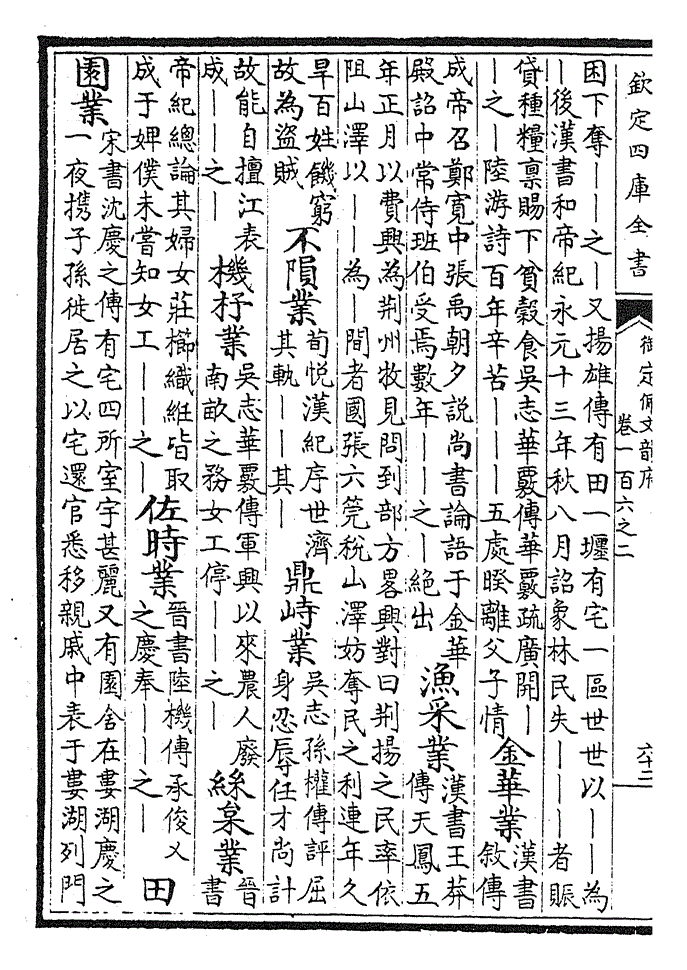 欽定四庫全書
御定佩文韻府
卷一百六之二
六十二
困下奪——之—又揚雄傳有田一壥有宅一區世世以——為
—後漢書和帝紀永元十三年秋八月詔象林民失———者賑
貸種糧禀賜下貧穀食吳志華覈傳華覈疏廣開—
—之—陸游詩百年辛苦———五處暌離父子情
金華業
漢書
敘傳
成帝召鄭寬中張禹朝夕說尚書論語于金華
殿詔中常侍班伯受焉數年———之—絕出
漁采業
漢書王莽
傳天鳳五
年正月以費興為荆州牧見問到部方畧興對曰荆揚之民率依
阻山澤以——為—間者國張六筦稅山澤妨奪民之利連年久
旱百姓饑窮
故為盜賊
不隕業
荀悅漢紀序世濟
其軌——其—
鼎峙業
吳志孫權傳評屈
身忍辱任才尚計
故能自擅江表
成——之—
機杼業
吳志華覈傳軍興以來農人廢
南畝之務女工停——之—
絲枲業
晉
書
帝紀總論其婦女莊櫛織紝皆取
成于婢僕未嘗知女工——之—
佐時業
晉書陸機傳承俊乂
之慶奉——之—
田
園業
宋書沈慶之傳有宅四所室宇甚麗又有園舍在婁湖慶之
一夜携子孫徙居之以宅還官悉移親戚中表于婁湖列門